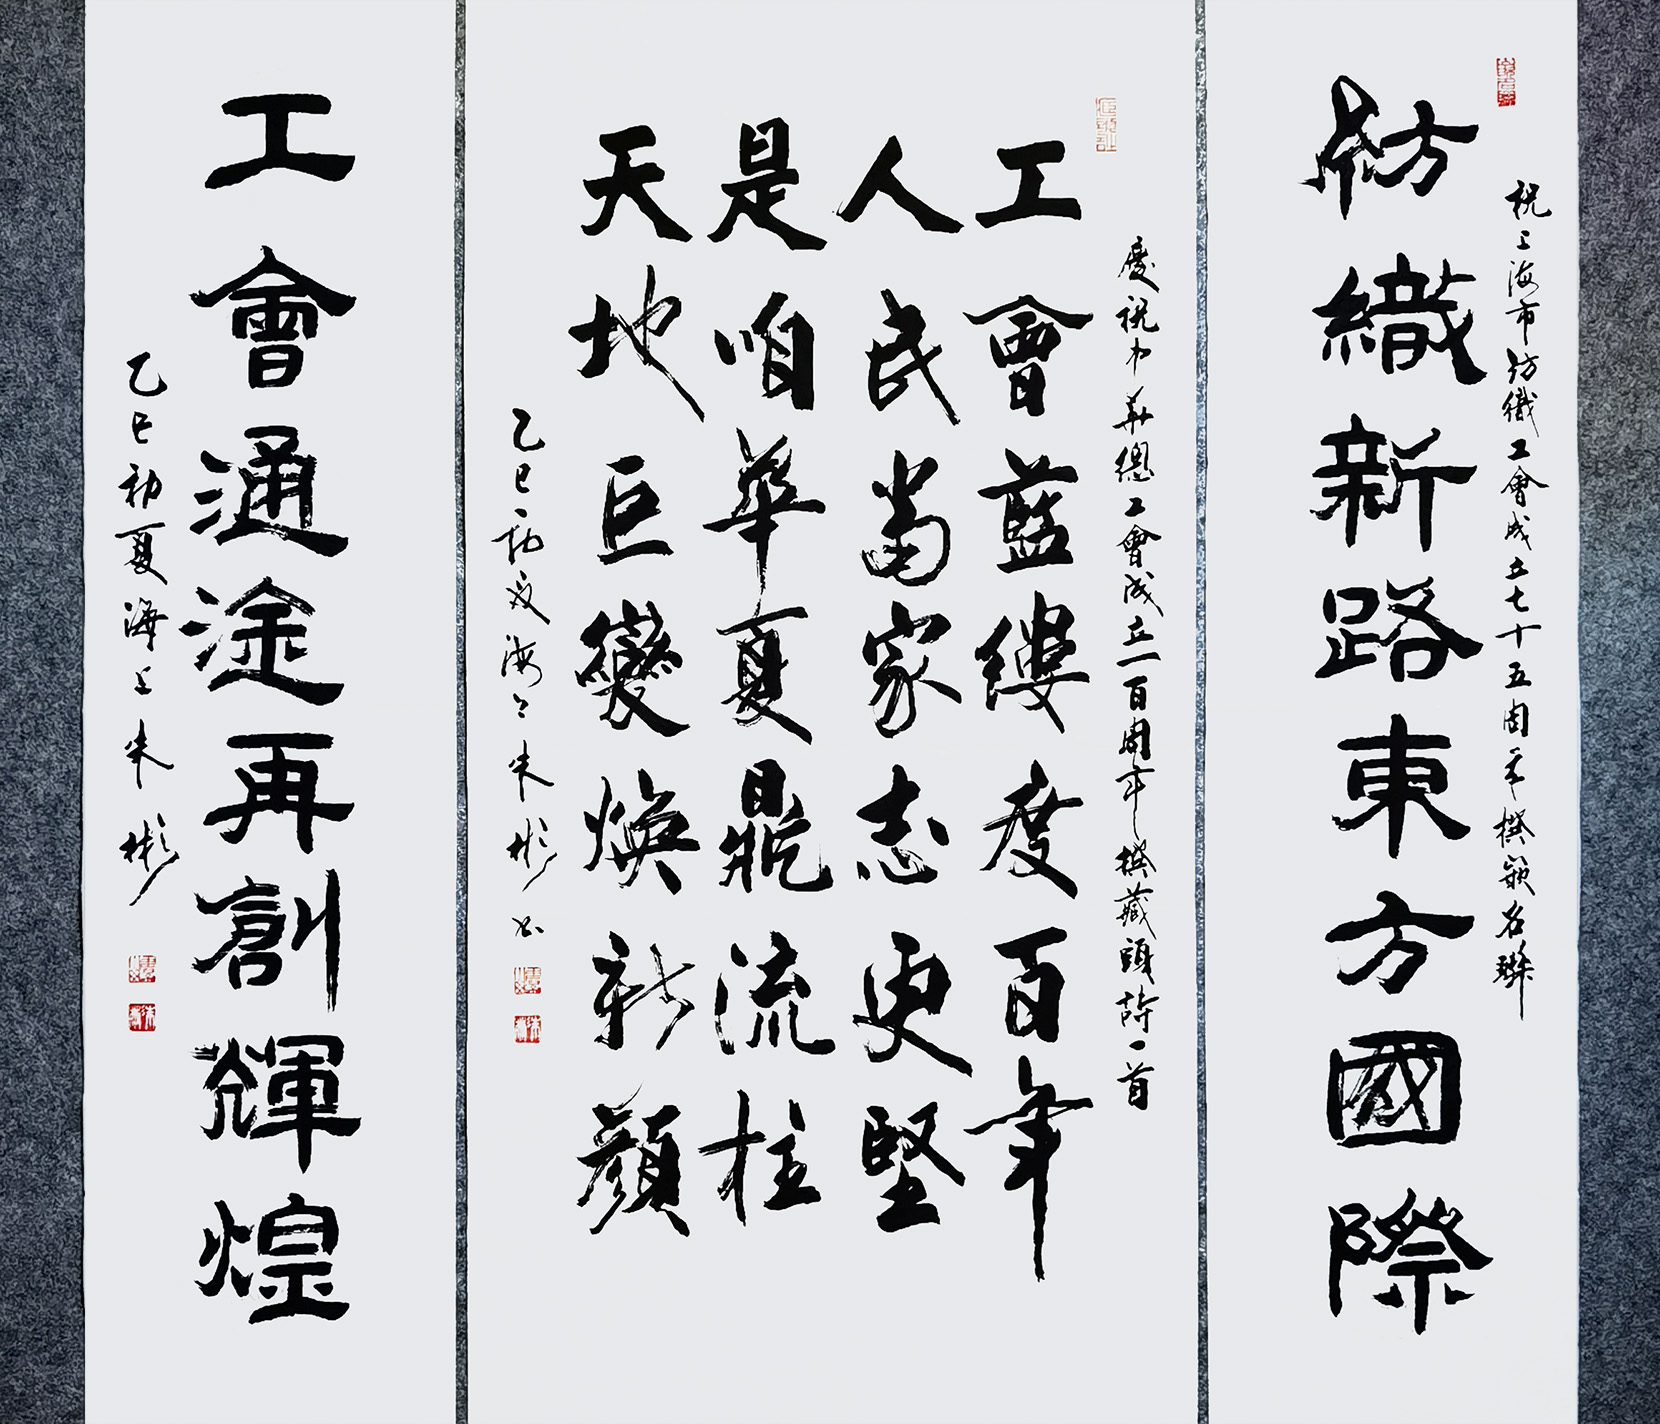 祝上海市紡織工會成立七十五周年撰嵌名聯
紡織新路東方國際
慶祝中華總工會成立一百周年撰藏頭詩一首
工會藍縷度百年
人民當家志更堅
是咱華夏鼎流柱
天地巨變煥新顏
乙巳初夏海上朱彬書
工會通途再創輝煌
乙巳初夏海上朱彬